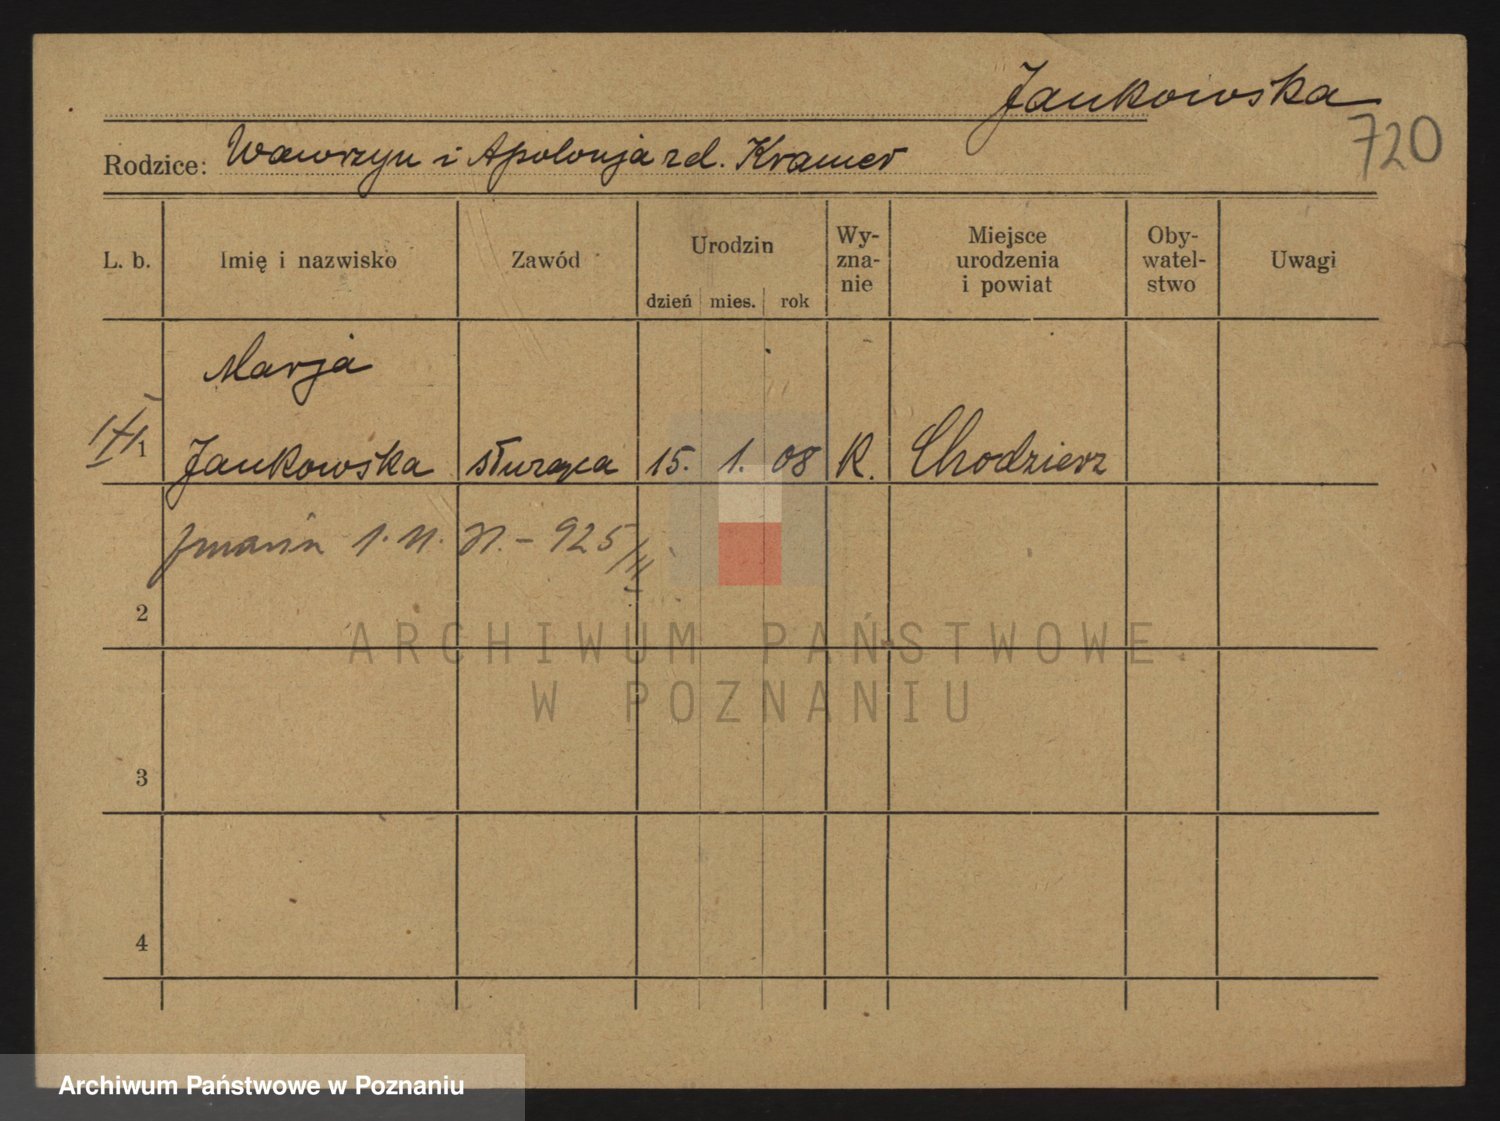 Jankowska
720
Rodzice: Wawrzyn i Apolonja zd. Kramer
L. b. Imię i nazwisko Zawód Urodzin dzień mies. rok Wy-zna-nie Miejsce urodzenia i powiat Oby-watel-stwo Uwagi
Marja
1 Jankowska służąca 15. 1. 08 K. Chodzież
925
2
ARCHIWUM PAŃSTWOWE
W POZNANIU
3
4
Archiwum Państwowe w Poznaniu